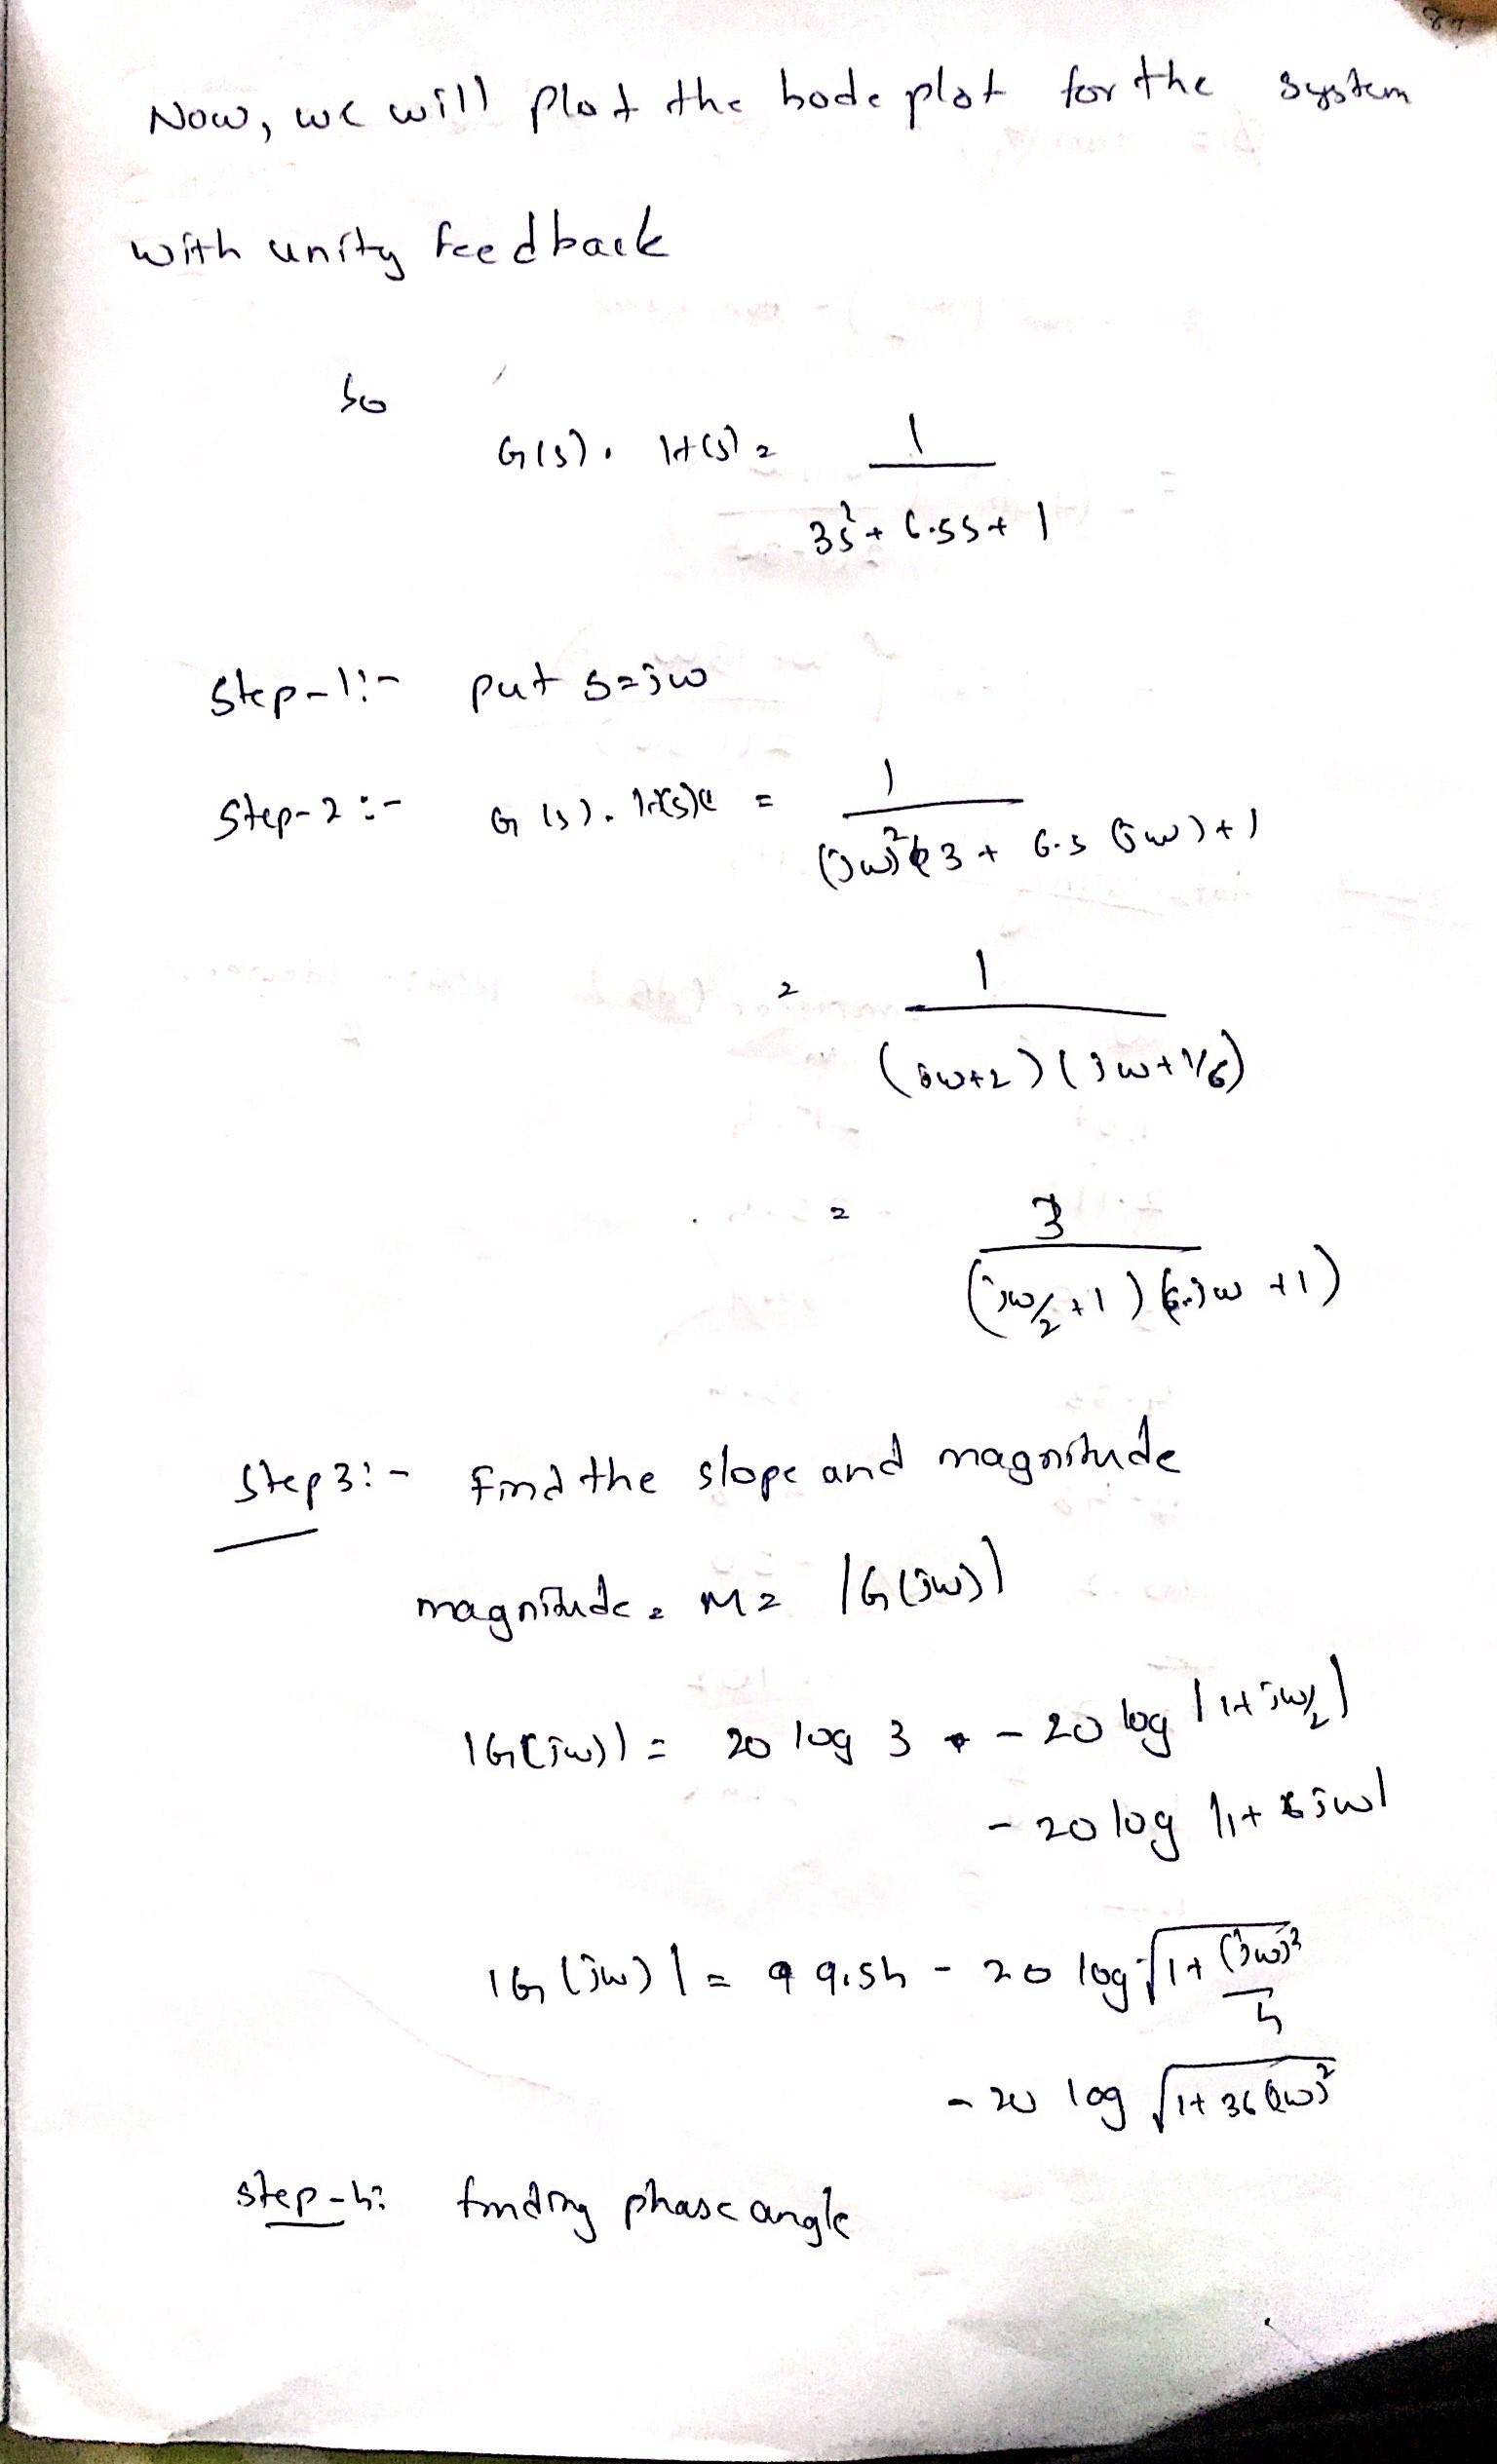 Now, we will plot the bode plot for the system
with unity feedback
so
G(s). H(s) = 1
3s² + 6.5s + 1
Step-1:- put s=jw
Step-2:- G(s). H(s) = 1
(jw)² 3 + 6.5 (jw) + 1
= 1
(jw+2) (jw+1/6)
= 3
(jw/2 +1) (6.jw +1)
Step 3:- find the slope and magnitude
magnitude = M = |G(jw)|
|G(jw)| = 20 log 3 - 20 log |1+jw/2|
- 20 log |1+ 6jw|
|G(jw)| = 9.54 - 20 log √1+ (jw)²
4
- 20 log √1+ 36(jw)²
step-4: finding phase angle